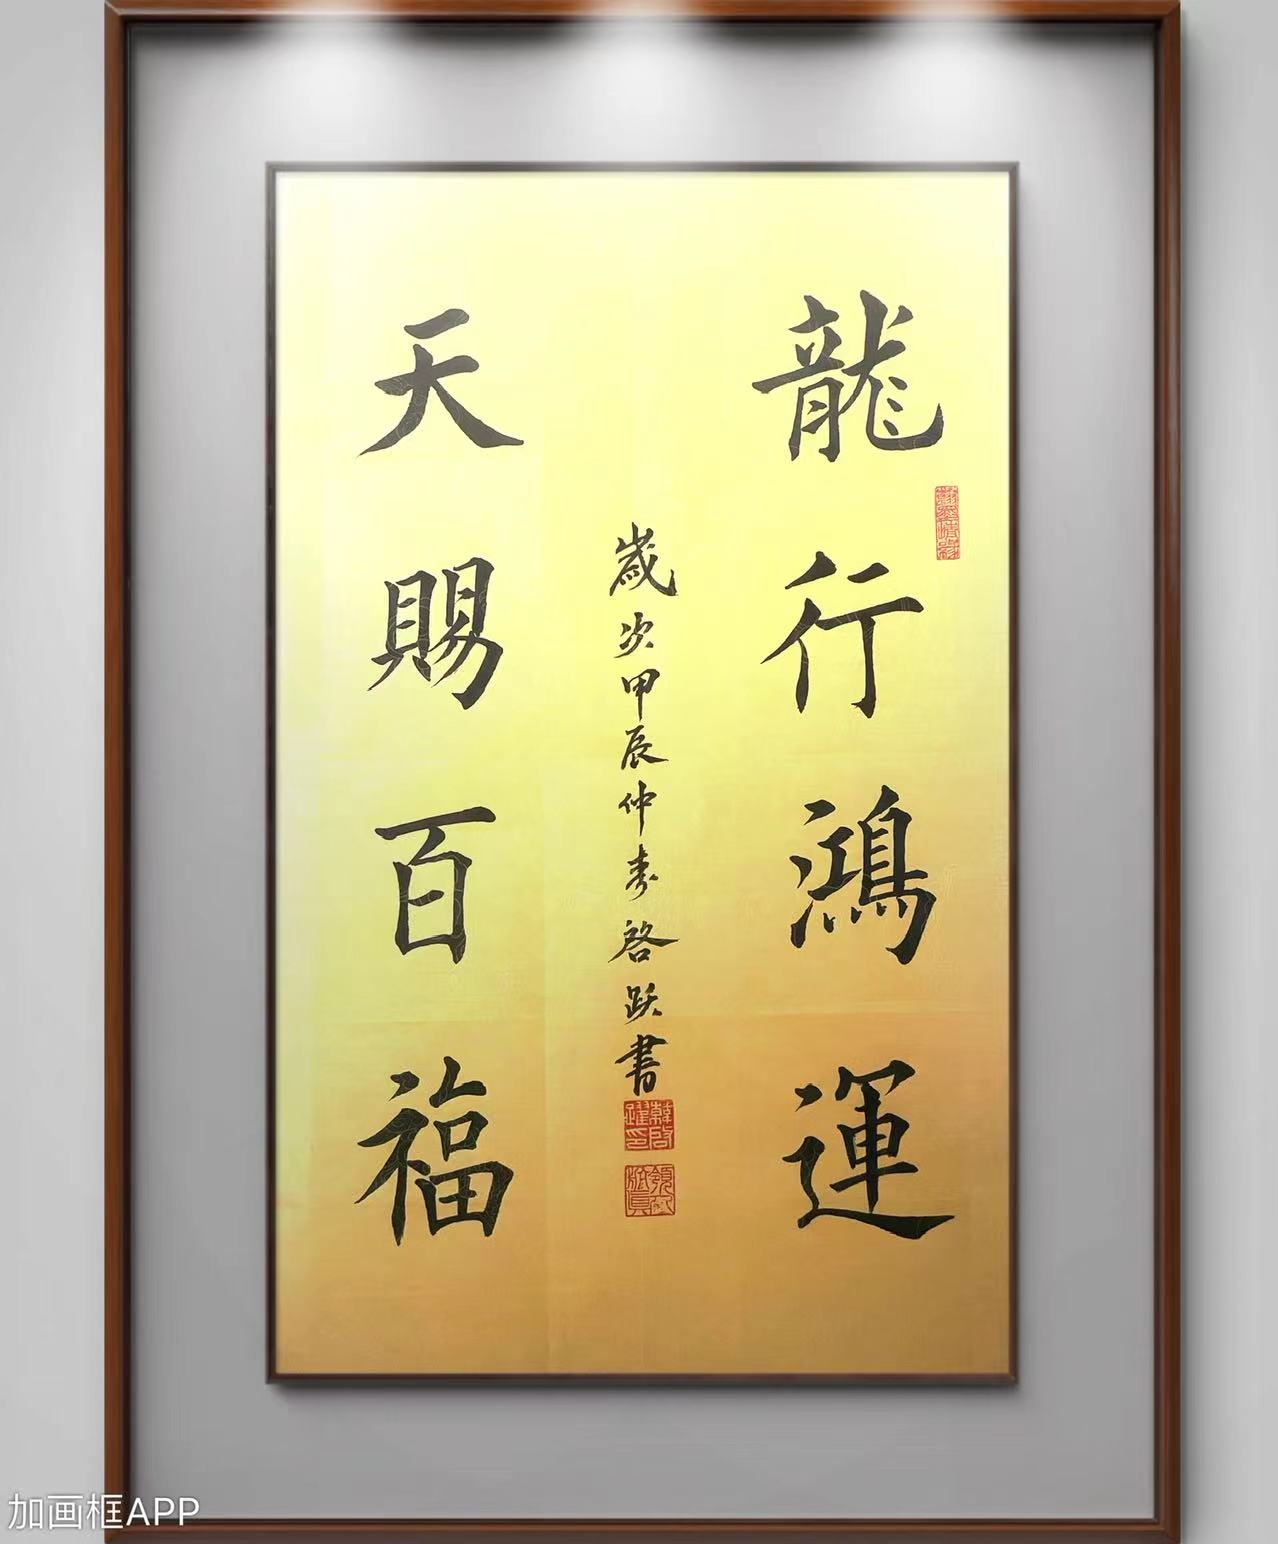 龍行鴻運
歲次甲辰仲春啓跃書
天賜百福
加画框APP